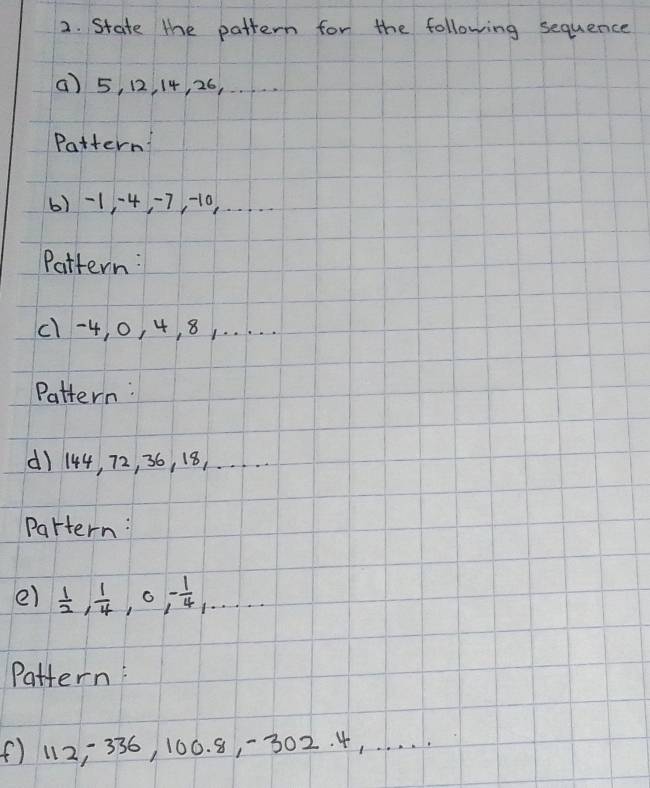 2. State the pattern for the following sequence
a) 5, 12, 14, 26, ......
Pattern:
b) -1, -4, -7, -10, ......
Pattern:
c) -4, 0, 4, 8, ......
Pattern:
d) 144, 72, 36, 18, ......
Partern:
e) 1/2, 1/4, 0, -1/4, ......
Pattern:
f) 112, -336, 100.8, -302.4, ......